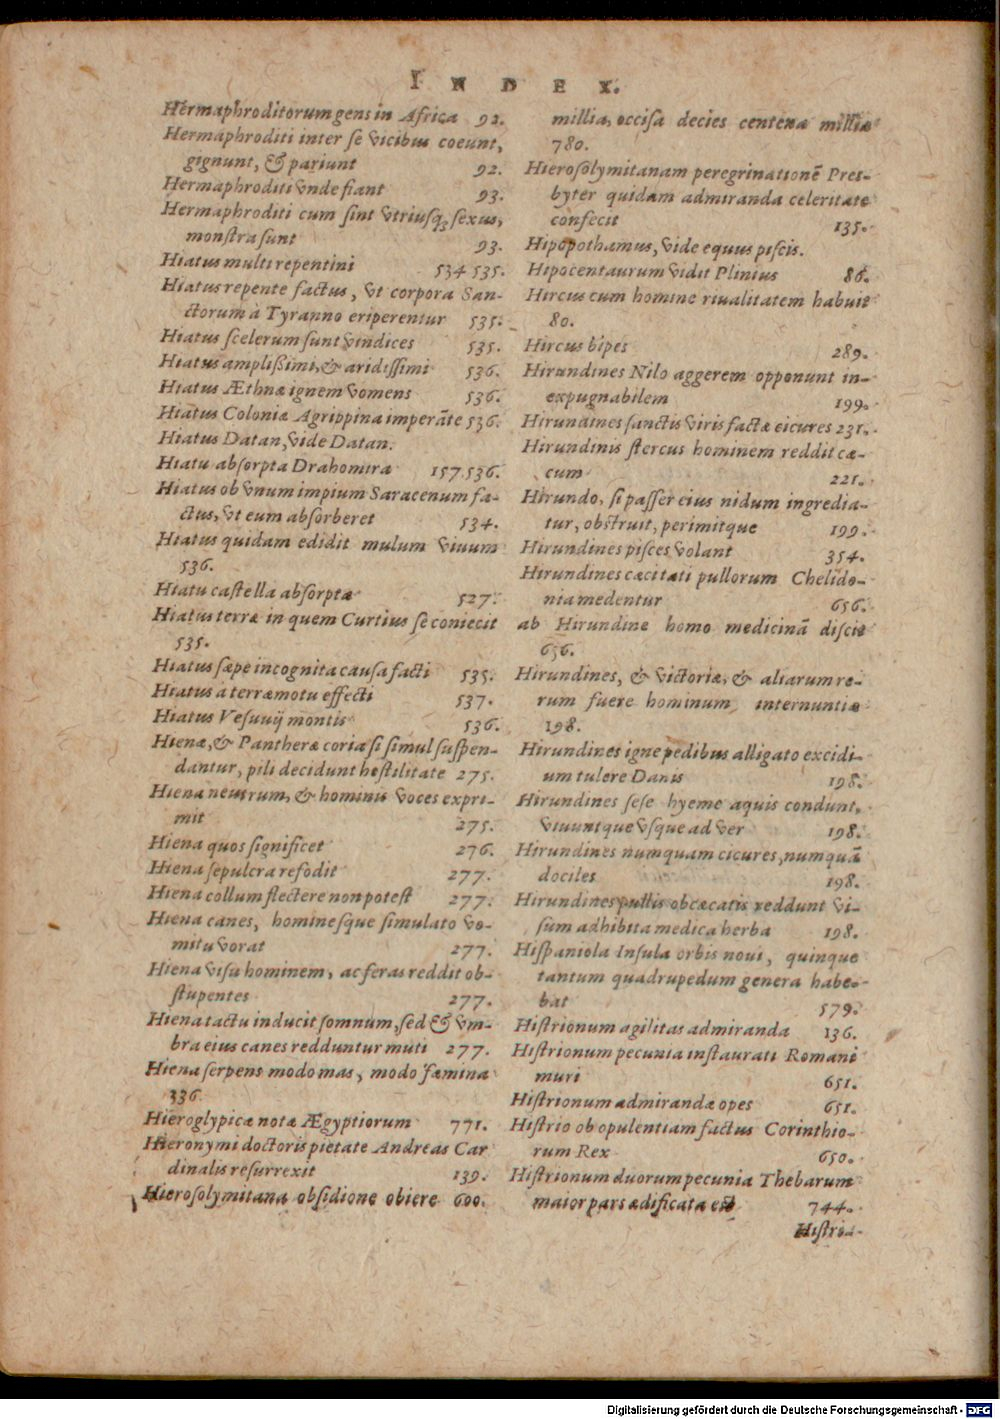 INDEX.
Hermaphroditorum gens in Africa 92.
Hermaphroditi inter se vicibus coeunt,
gignunt, & pariunt 92.
Hermaphroditi vnde fiant 93.
Hermaphroditi cum sint vtriusq; sexus,
monstra sunt 93.
Hiatus multi repentini 534 535.
Hiatus repente factus, vt corpora San-
ctorum à Tyranno eriperentur 535.
Hiatus scelerum sunt vindices 535.
Hiatus amplißimi, & aridissimi 536.
Hiatus Æthnæ ignem vomens 536.
Hiatus Coloniæ Agrippina imperāte 536.
Hiatus Datan, vide Datan.
Hiatu absorpta Drahomira 157.536.
Hiatus ob vnum impium Saracenum fa-
ctus, vt eum absorberet 534.
Hiatus quidam edidit mulum viuum
536.
Hiatu castella absorptæ 527.
Hiatus terræ in quem Curtius se coniecit
535.
Hiatus sæpe incognita causa facti 535.
Hiatus à terræmotu effecti 537.
Hiatus Vesuuij montis 536.
Hienæ, & Pantheræ coria si simul suspen-
dantur, pili decidunt hostilitate 275.
Hiena neutrum, & hominis voces expri-
mit 275.
Hiena quos significet 276.
Hiena sepulcra refodit 277.
Hiena collum flectere non potest 277.
Hiena canes, hominesque simulato vo-
mitu vorat 277.
Hiena visu hominem, ac feras reddit ob-
stupentes 277.
Hiena tactu inducit somnum, sed & vm-
bra eius canes redduntur muti 277.
Hiena serpens modo mas, modo fæmina
336.
Hieroglypicæ notæ Ægyptiorum 771.
Hieronymi doctoris pietate Andreas Car
dinalis resurrexit 139.
Hierosolymitana obsidione obiere 600.
millia, occisa decies centena millia
780.
Hierosolymitanam peregrinationē Pres-
byter quidam admiranda celeritate
confecit 135.
Hipopothamus, vide equus piscis.
Hipocentaurum vidit Plinius 86.
Hircus cum homine riualitatem habuit
80.
Hircus bipes 289.
Hirundines Nilo aggerem opponunt in-
expugnabilem 199.
Hirundines sanctis viris factæ cicures 231.
Hirundinis stercus hominem reddit cæ-
cum 221.
Hirundo, si passer eius nidum ingredia-
tur, obstruit, perimitque 199.
Hirundines pisces volant 354.
Hirundines cæcitati pullorum Chelido-
nia medentur 656.
ab Hirundine homo medicinā discit
656.
Hirundines, & victoriæ, & aliarum re-
rum fuere hominum internuntiæ
198.
Hirundines igne pedibus alligato excidi-
um tulere Danis 198.
Hirundines sese hyeme aquis condunt,
viuuntque vsque ad ver 198.
Hirundines numquam cicures, numquā
dociles 198.
Hirundines pullis obcæcatis reddunt vi-
sum adhibita medica herba 198.
Hispaniola Insula orbis noui, quinque
tantum quadrupedum genera habe-
bat 579.
Histrionum agilitas admiranda 136.
Histrionum pecunia instaurati Romani
muri 651.
Histrionum admirandæ opes 651.
Histrio ob opulentiam factus Corinthio-
rum Rex 650.
Histrionum duorum pecunia Thebarum
maior pars ædificata est 744.
Histrio-
Digitalisierung gefördert durch die Deutsche Forschungsgemeinschaft - DFG